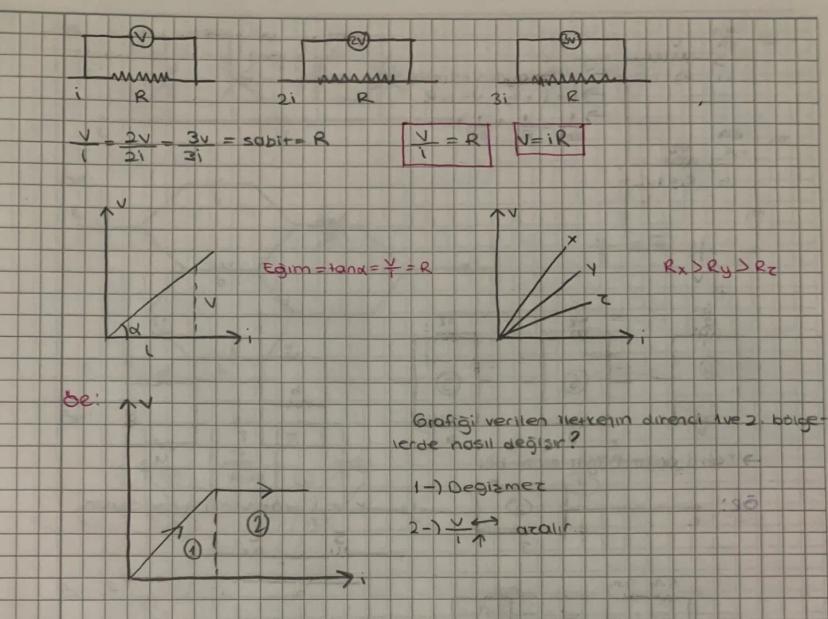 V 2V 3V
i R 2i R 3i R
V/i = 2V/2i = 3V/3i = sabit = R V/i = R V=iR
V V
X
Eğim = tanα = V/i = R Y Rx > Ry > Rz
V Z
α i i
i
ör:
V
Grafiği verilen iletkenin direnci 1 ve 2. bölge-
lerde nasıl değişir?
1-) Değişmez
2-) V↔/i↑ azalır.
① ②
i